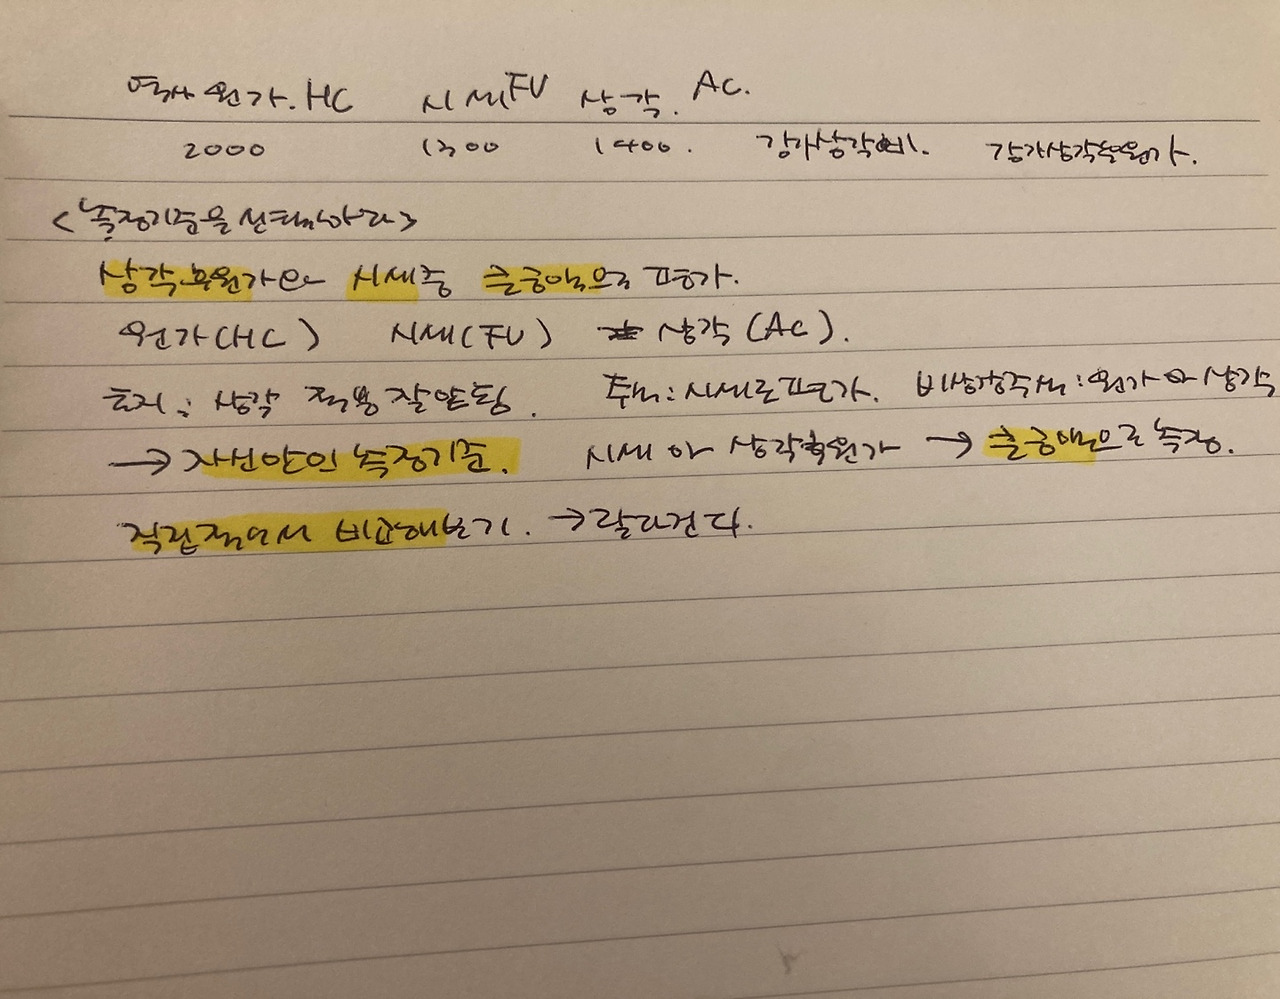 역사원가. HC 시세FV 상각. AC.
2000 1300 1400. 감가상각비. 감가상각후원가.
<측정기준을 선택하라>
상각후원가와 시세중 큰금액으로 평가.
원가(HC) 시세(FV) 상각(AC).
토지: 상각 적용 잘안됨. 주식: 시세로평가. 비상장주식: 원가 아 상각
→ 자산안인 측정기준. 시세 아 상각후원가 → 큰금액으로 측정.
직접적에서 비교해보기. → 달라진다.